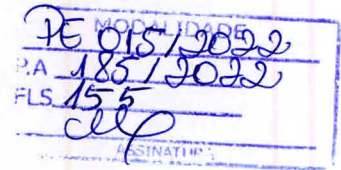 MODALIDADE
PE 015/2022
P.A 185/2022
FLS 155
ASSINATURA